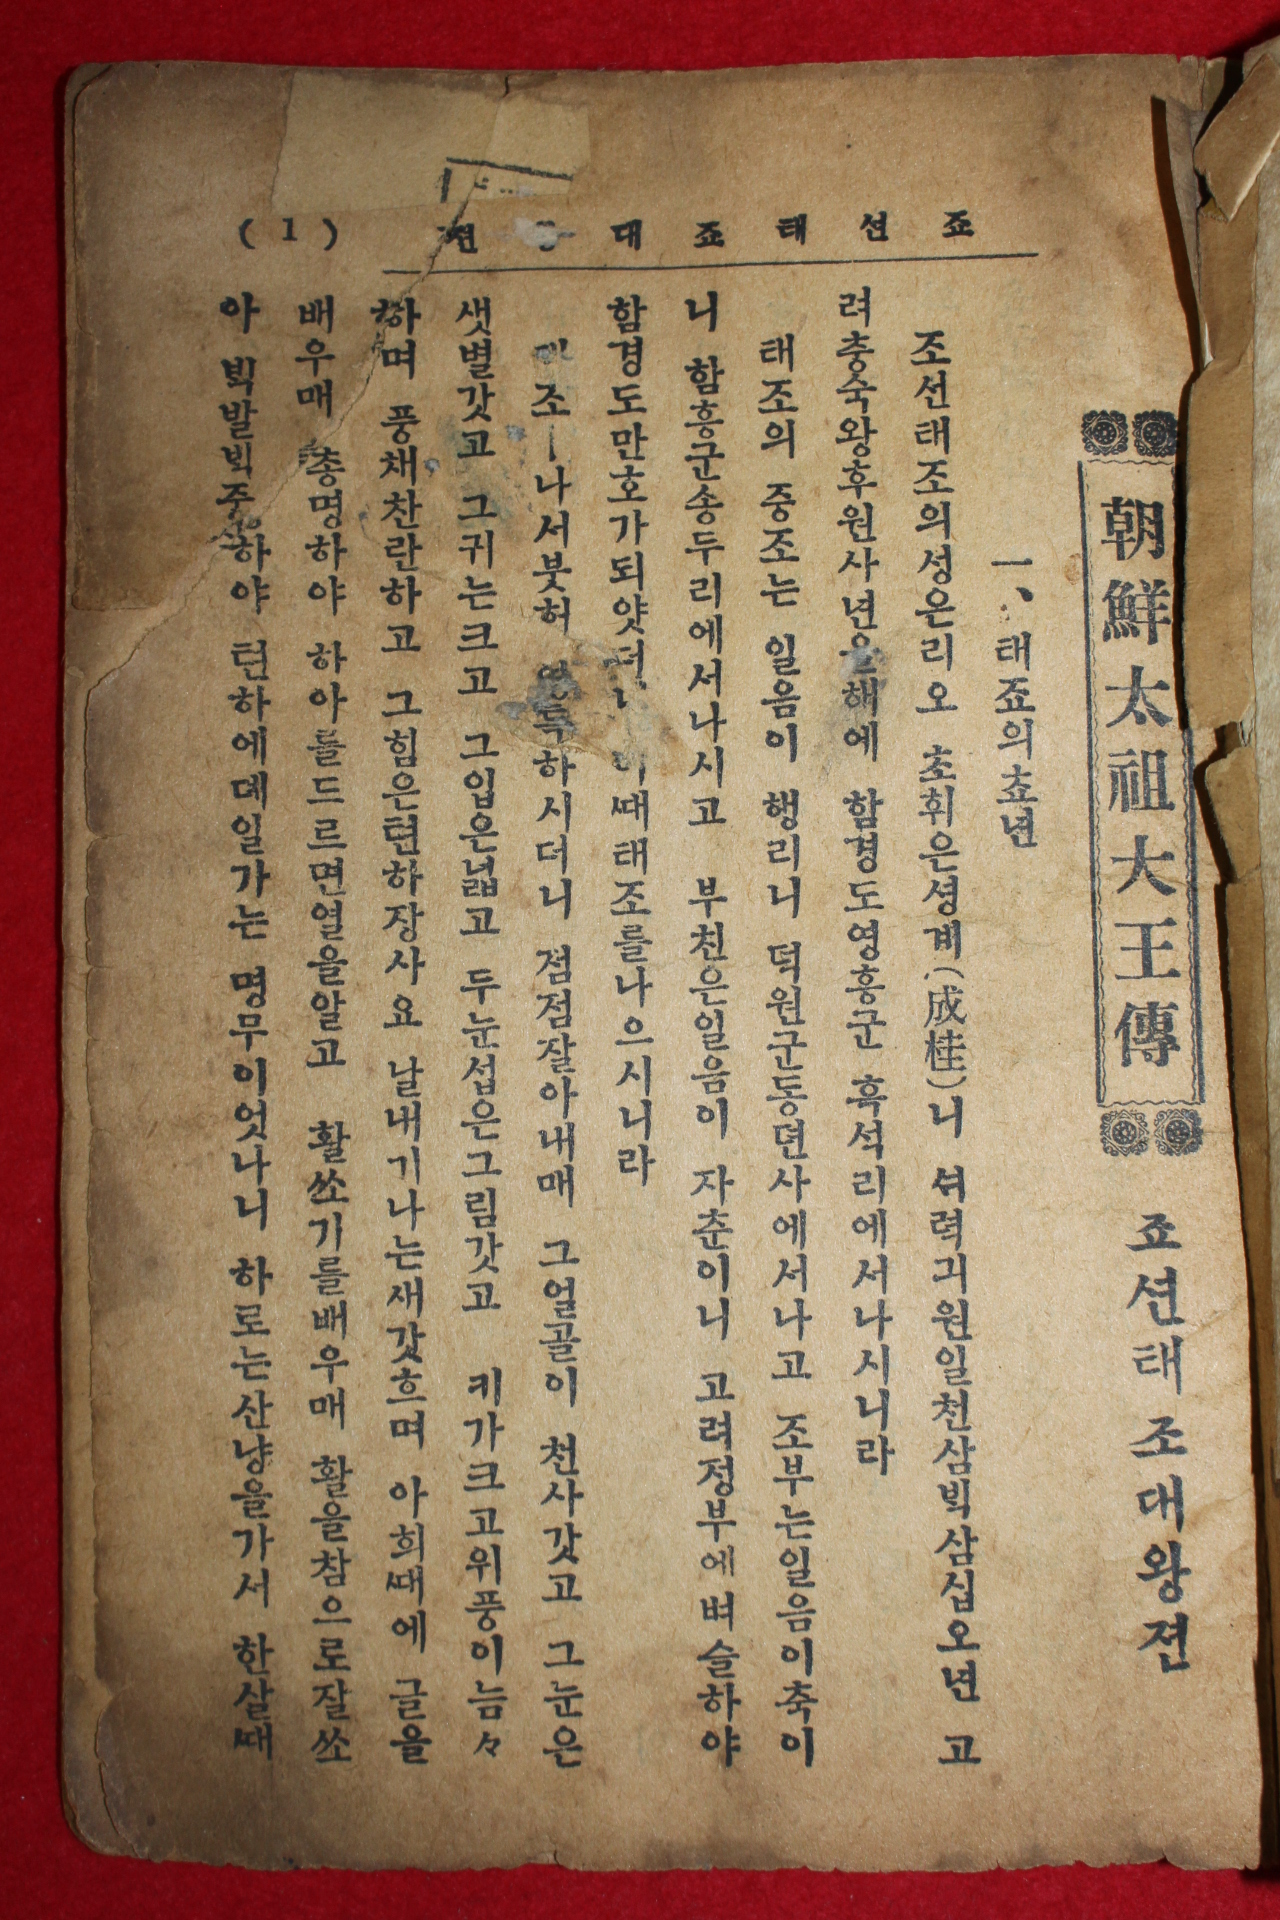 죠션태죠대 젼
( 1 )
朝鮮太祖大王傳
죠션태조대왕젼
一、태죠의쵸년
조선태조의성은리오 초휘은셩계(成桂)니 셔력긔원일천삼빅삼십오년 고
려충숙왕후원사년을해에 함경도영흥군 흑석리에서나시니라
태조의 중조는 일음이 행리니 덕원군동면사에서나고 조부는일음이축이
니 함흥군송두리에서나시고 부친은일음이 자춘이니 고려정부에벼슬하야
함경도만호가되얏더니 이때태조를나으시니라
태조ㅣ나서붓허 영특하시더니 졈졈잘아내매 그얼골이 천사갓고 그눈은
샛별갓고 그귀는크고 그입은넓고 두눈섭은그림갓고 키가크고위풍이늠々
하며 풍채찬란하고 그힘은텬하장사요 날내기나는새갓흐며 아희때에 글을
배우매 총명하야 하아를드르면열을알고 활쏘기를배우매 활을참으로잘쏘
아 빅발빅중하야 텬하에뎨일가는 명무이엇나니 하로는산냥을가서 한살때